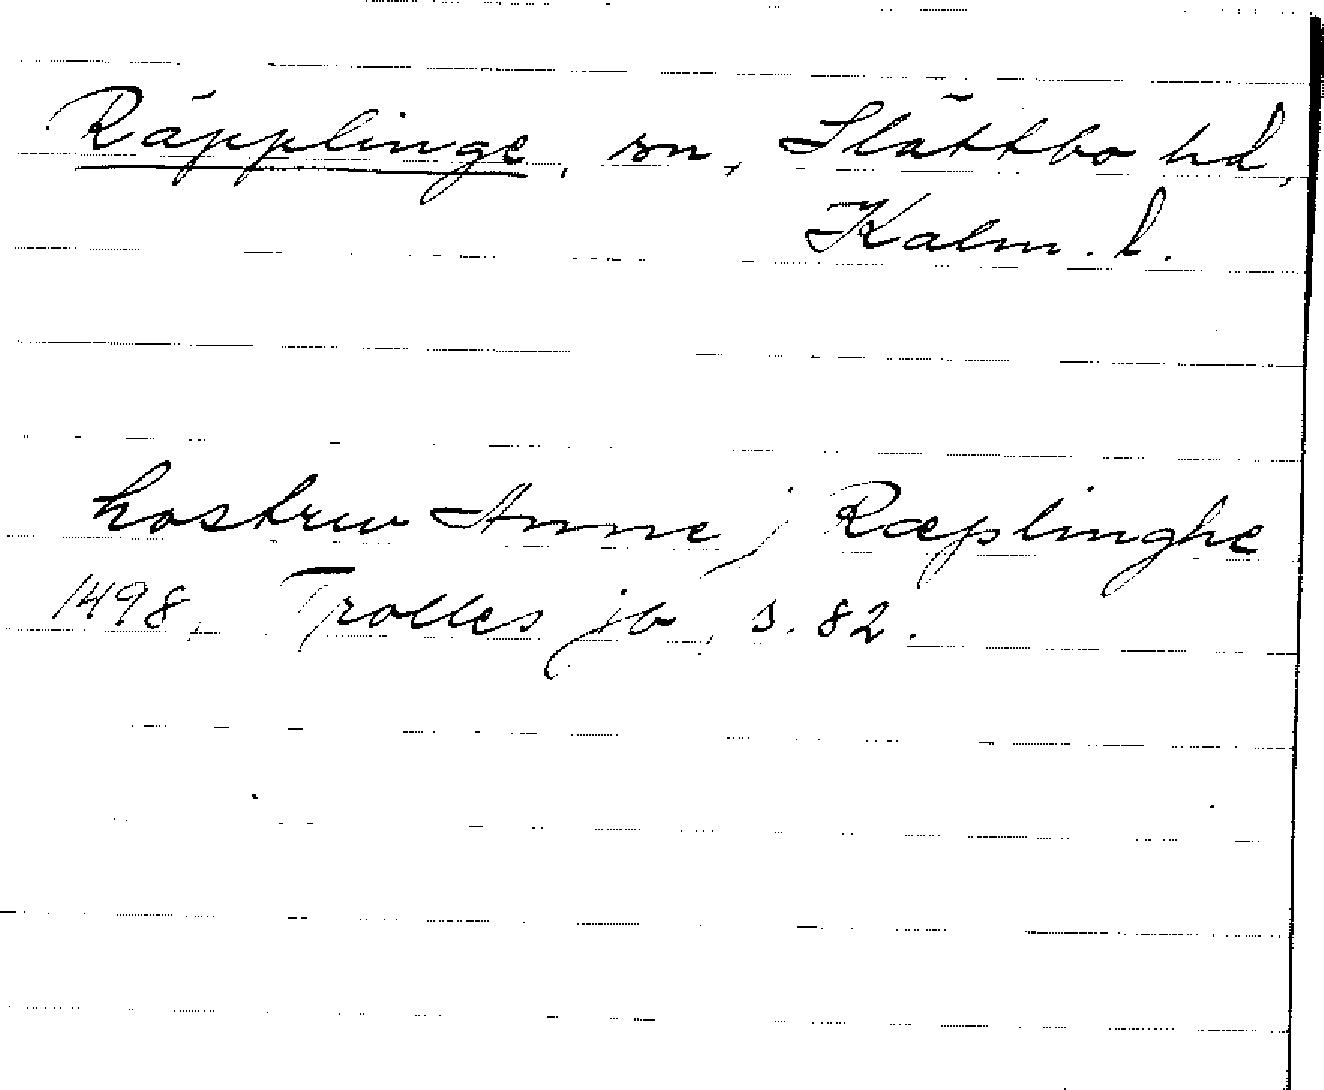 Räpplinge, sn, Slättbo hd,
Kalm. l.
hostrw Anne j Ræplinghe
1498, Trolles jb, s. 82.